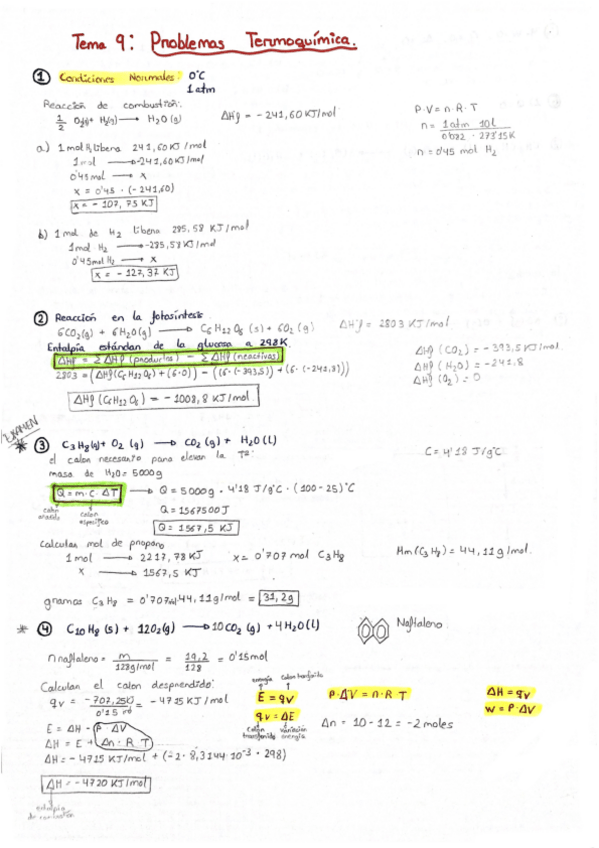 Tema 9: Problemas Termoquímica.
① Condiciones Normales: 0°C
1 atm
Reacción de combustión:
1/2 O2(g) + H2(g) → H2O (g) ΔHf = -241,60 KJ/mol
P·V = n·R·T
n = 1 atm 10l / 0'082 · 273'15K
n = 0'45 mol H2
a) 1 mol H2 libera 241,60 KJ/mol
1 mol → -241,60 KJ/mol
0'45 mol → x
x = 0'45 · (-241,60)
x = -107,75 KJ
b) 1 mol de H2 libera 285,58 KJ/mol
1 mol H2 → -285,58 KJ/mol
0'45 mol H2 → x
x = -127,37 KJ
② Reacción en la fotosíntesis
6CO2(g) + 6H2O(g) → C6H12O6 (s) + 6O2 (g) ΔHf = 2803 KJ/mol
Entalpía estándan de la glucosa a 298K
ΔHf = ΣΔHf (productos) - ΣΔHf (reactivos)
2803 = (ΔHf(C6H12O6) + (6·0)) - ((6·(-393,5)) + (6·(-241,8)))
ΔHf (C6H12O6) = -1008,8 KJ/mol
ΔHf (CO2) = -393,5 KJ/mol
ΔHf (H2O) = -241,8
ΔHf (O2) = 0
EXAMEN
* ③ C3H8(g) + O2 (g) → CO2 (g) + H2O (l)
el calor necesario para elevar la Tª:
C = 4'18 J/g°C
masa de H2O = 5000g
Q = m·c·ΔT → Q = 5000g · 4'18 J/g°C · (100-25)°C
calor
calor
específico
Q = 1567500 J
Q = 1567,5 KJ
Calcular mol de propano
1 mol → 2217,78 KJ x = 0'707 mol C3H8
x → 1567,5 KJ
Mm (C3H8) = 44,11 g/mol
gramos C3H8 = 0'707 mol · 44,11 g/mol = 31,2g
* ④ C10H8 (s) + 12O2(g) → 10CO2 (g) + 4H2O (l) Naftaleno
n naftaleno = m / 128g/mol = 19,2 / 128 = 0'15 mol
Calcular el calor desprendido:
qv = -707,25KJ / 0'15 m = -4715 KJ/mol
energía calor transferido
E = qv
qv = ΔE
calor transferido variación energía
P·ΔV = n·R·T
Δn = 10 - 12 = -2 moles
ΔH = qv
w = P·ΔV
E = ΔH - P·ΔV
ΔH = E + Δn·R·T
ΔH = -4715 KJ/mol + (-2 · 8,3144·10⁻³ · 298)
ΔH = -4720 KJ/mol
entalpía
de combustión